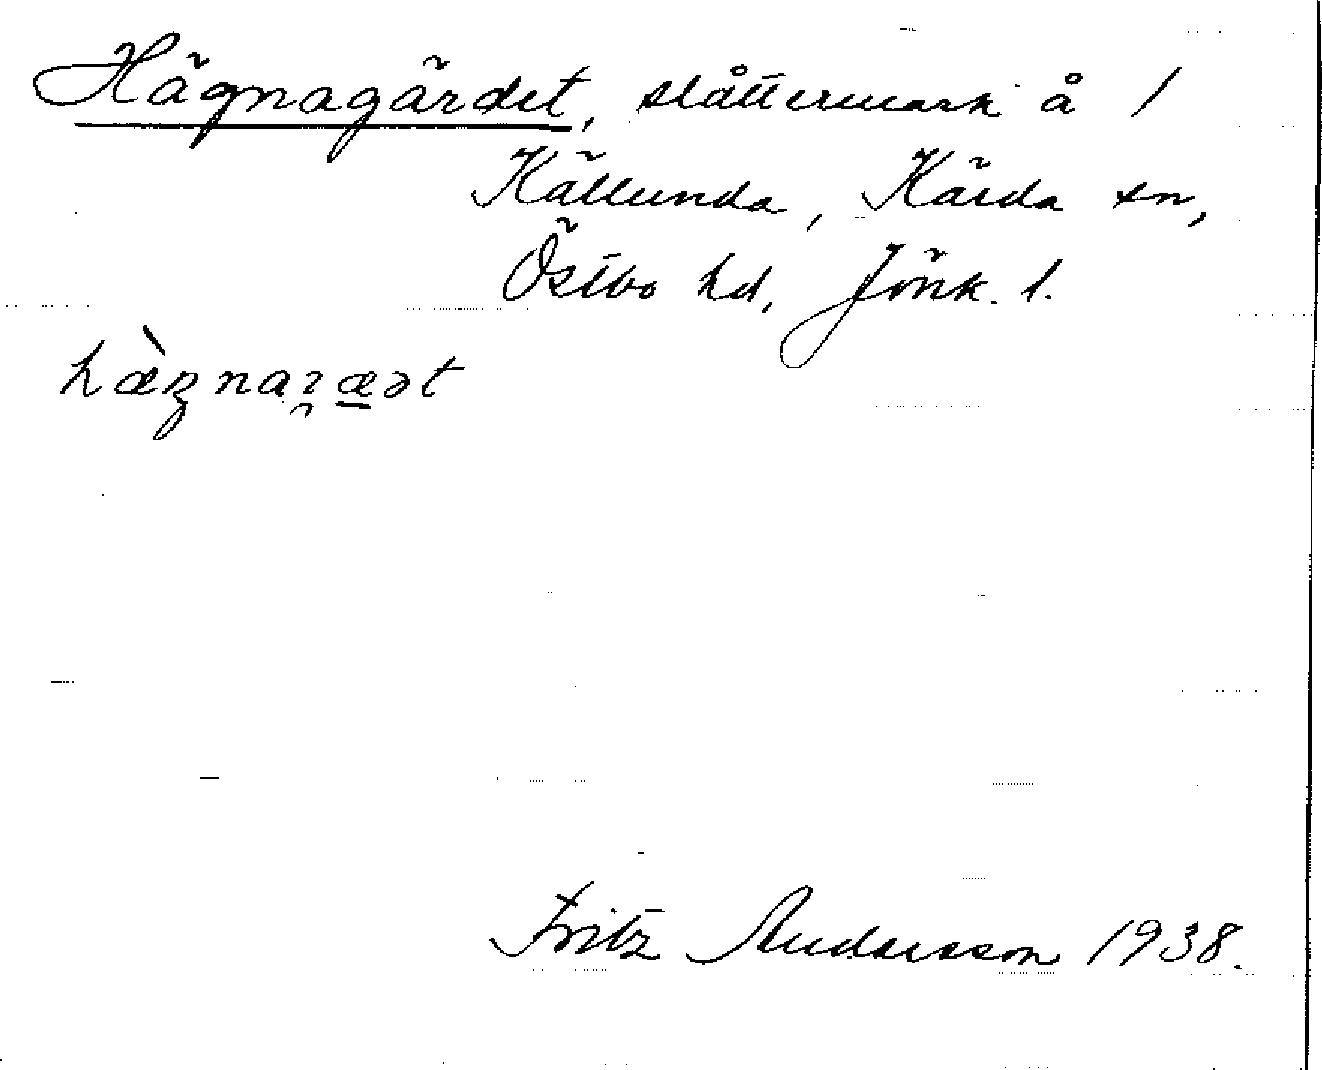 Hägnagärdet, slåttermark å 1
Källunda, Kärda sn,
Östbo hd, Jönk. l.
Fritz Andersson 1938.